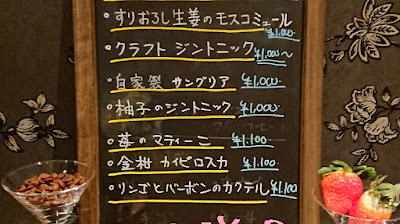 ・すりおろし生姜のモスコミュール ¥1,000-
・クラフト ジントニック ¥1,000〜
・自家製 サングリア ¥1,000-
・柚子のジントニック ¥1,000-
・苺の マティーニ ¥1.100-
・金柑 カイピロスカ ¥1.100-
・リンゴとバーボンのカクテル ¥1,100